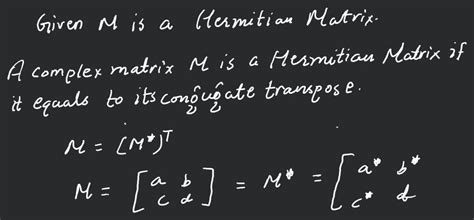 Given M is a Hermitian Matrix.
A complex matrix M is a Hermitian Matrix if
it equals to its conjugate transpose.
M = [M*]ᵀ
M = [a b
c d] = M* = [a* b*
c* d]